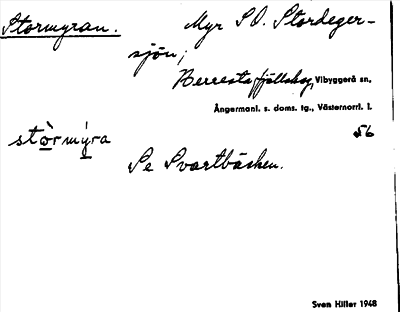 Stormyran. Myr S.O. Stordeger-
sjön;
fjällskog, Vibyggerå sn,
Ångermanl. s. doms. tg., Västernorrl. l.
stòrmýra 56
Se Svartbäcken.
Sven Hiller 1948